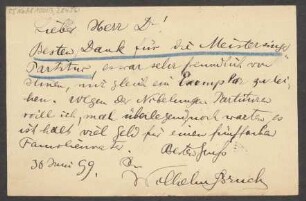 Lieber Herr Dr!
Besten Dank für die Meistersinger
Partitur, es war sehr freundlich von
Ihnen, mir gleich ein Exemplar zu lei-
hen. Wegen der Nibelungen Partituren
will ich, mal überlegen noch warten, es
ist halt viel Geld für einen fünffachen
Familienvater.
Besten Gruß
30 Juni 99.
Wilhelm Bruch